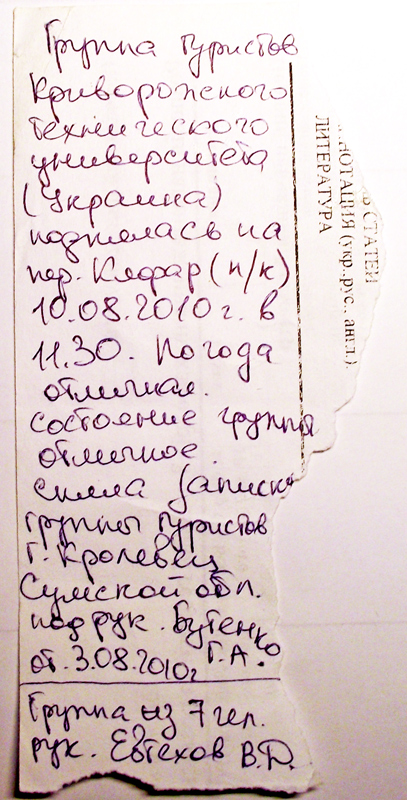 Группа туристов
Криворожского
технического
университета
(Украина)
поднялась на
пер. Клофар (н/к)
10.08.2010 г. в
11.30. Погода
отличная.
состояние группы
отличное.
сняла записку
группы туристов
г. Кролевец
Сумской обл.
под рук. Бутенко
Г.А.
от. 3.08.2010г
Группа из 7 чел.
рук. Евтехов В.Д.
СТАТЕЙ
НОТАЦИЯ (укр., рус., англ.).
ЛИТЕРАТУРА